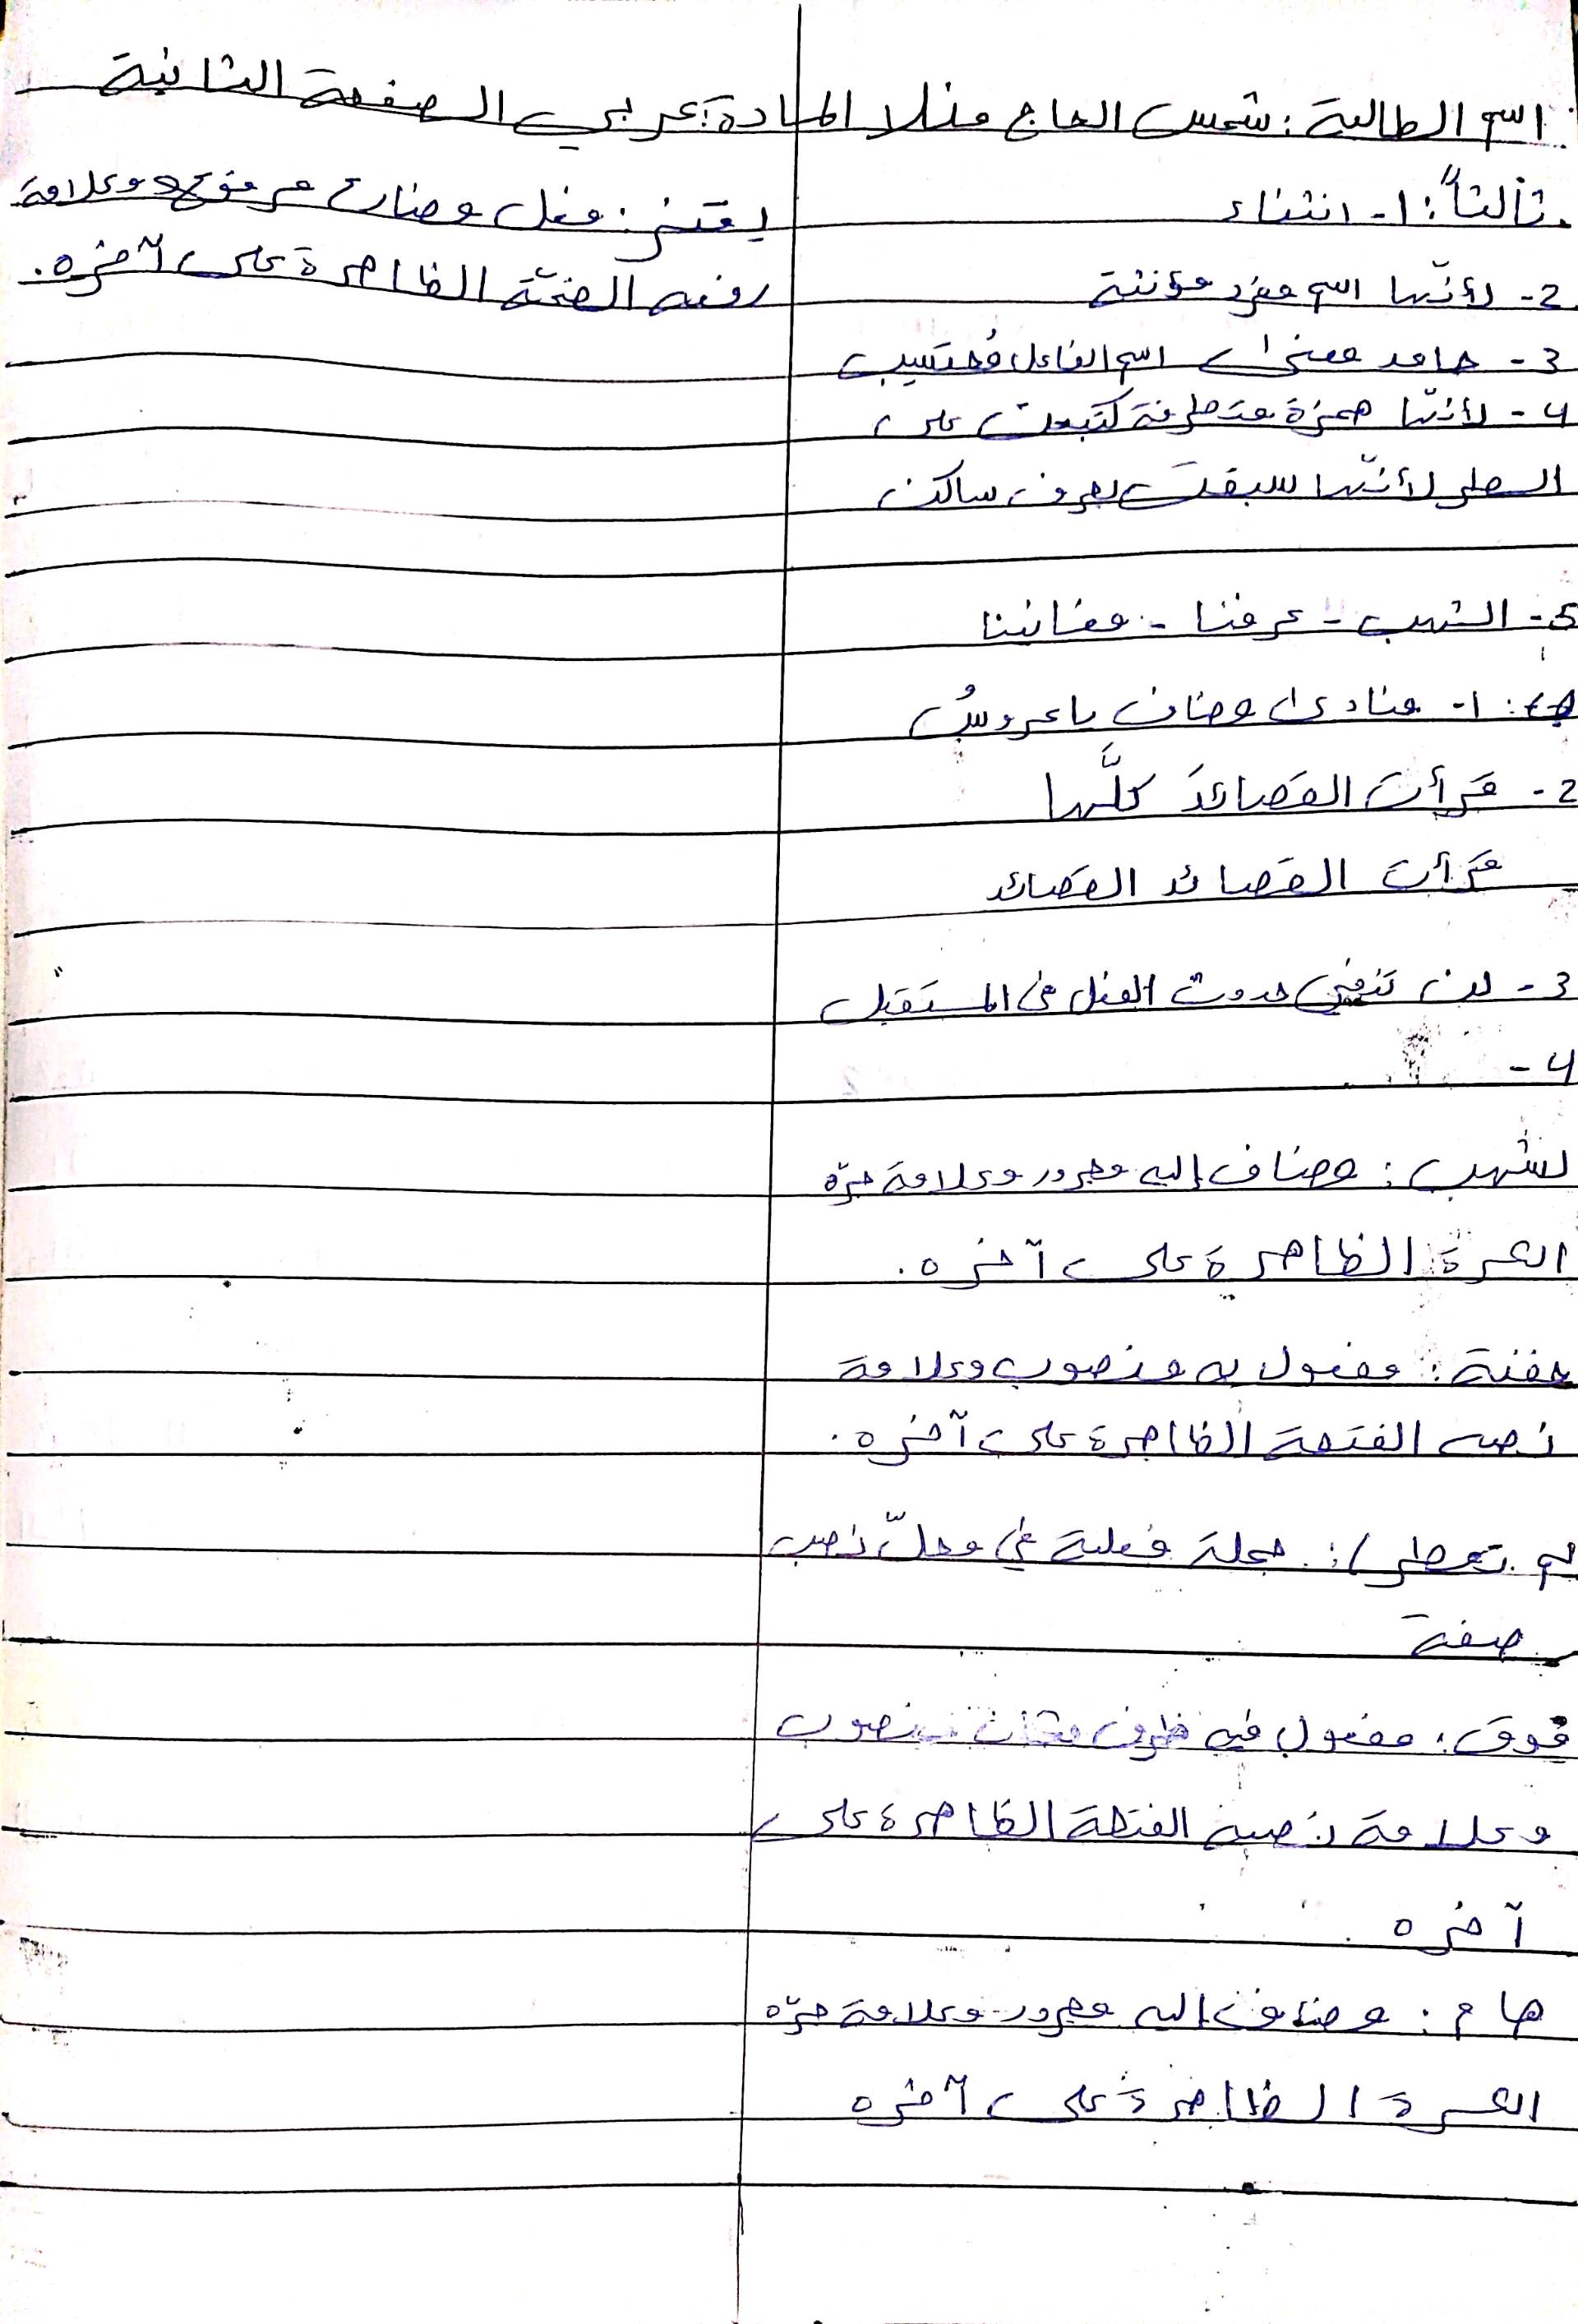 اسم الطالبة: شمس الحاج منلا المادة: عربي الصفحة الثانية
ثالثاً: 1- انتشاء
2- لأنّها اسم مفرد مؤنثة
3- جامد معنى اسم الفاعل مُحتَسِب
4- لأنّها همزة متطرفة كتبت على
السطر لأنّها سبقت بحرف ساكن
5- الشهب - عرفنا - مغانينا
1- منادى مضاف يا عروسُ
2- قرأت القصائدَ كلَّها
قرأت القصائد القصائد
3- لن تنفي حدوث الفعل في المستقبل
4-
لشهب: مضاف إليه مجرور وعلامة جرّه
الكسرة الظاهرة على آخره.
حفنة: مفعول به منصوب وعلامة
نصبه الفتحة الظاهرة على آخره.
لم تعطر): جملة فعلية في محلّ نصب
صفة
فوق: مفعول فيه ظرف مكان منصوب
وعلامة نصبه الفتحة الظاهرة على
آخره
هام: مضاف إليه مجرور وعلامة جرّه
الكسرة الظاهرة على آخره
فعل مضارع مرفوع وعلامة
رفعه الضمّة الظاهرة على آخره.